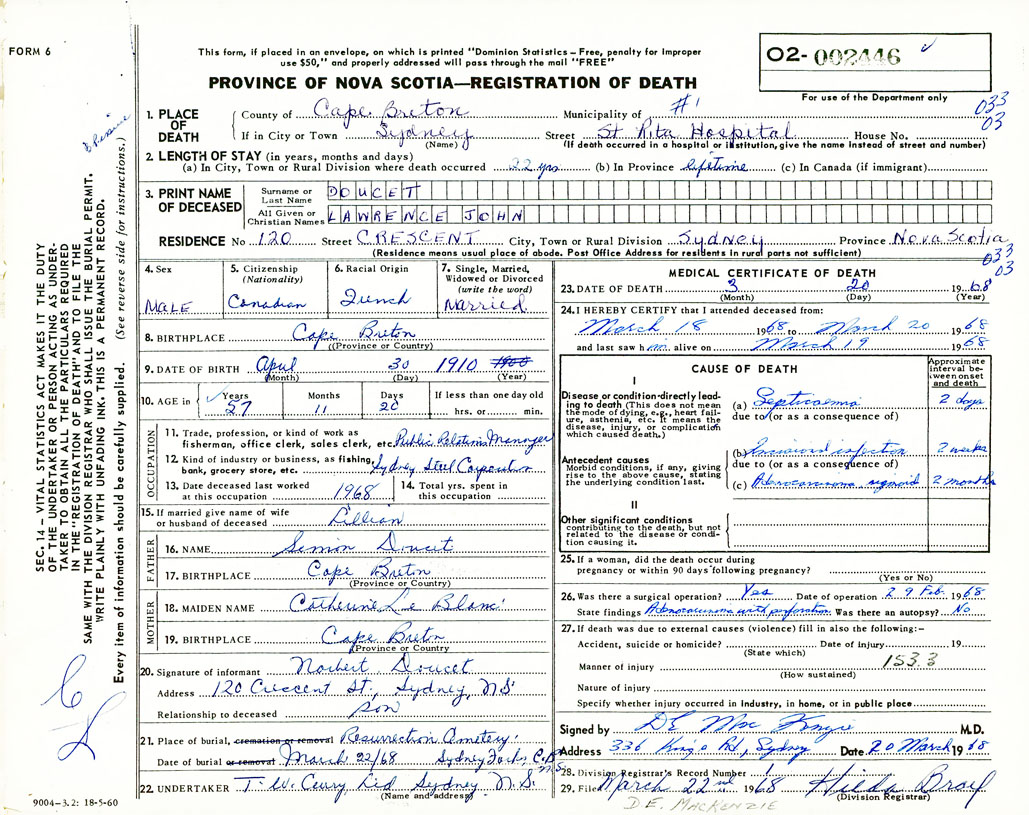 FORM 6
This form, if placed in an envelope, on which is printed "Dominion Statistics – Free, penalty for Improper
use $50," and properly addressed will pass through the mail "FREE"
O2- 002446
For use of the Department only
PROVINCE OF NOVA SCOTIA—REGISTRATION OF DEATH
033
03
1. PLACE OF DEATH
County of Cape Breton Municipality of #1
If in City or Town Sydney Street St Rita Hospital House No.
(Name) (If death occurred in a hospital or institution, give the name instead of street and number)
2. LENGTH OF STAY (in years, months and days)
(a) In City, Town or Rural Division where death occurred 22 yrs (b) In Province lifetime (c) In Canada (if immigrant)
3. PRINT NAME OF DECEASED
Surname or Last Name DOUCET
All Given or Christian Names LAWRENCE JOHN
RESIDENCE No 120 Street CRESCENT City, Town or Rural Division Sydney Province Nova Scotia
(Residence means usual place of abode. Post Office Address for residents in rural parts not sufficient)
033
03
4. Sex MALE
5. Citizenship (Nationality) Canadian
6. Racial Origin French
7. Single, Married, Widowed or Divorced (write the word) Married
8. BIRTHPLACE Cape Breton
(Province or Country)
9. DATE OF BIRTH April 30 1910 1900
(Month) (Day) (Year)
10. AGE in Years 57 Months 11 Days 20 If less than one day old hrs. or min.
OCCUPATION
11. Trade, profession, or kind of work as
fisherman, office clerk, sales clerk, etc. Public Relations Manager
12. Kind of industry or business, as fishing,
bank, grocery store, etc. Sydney Steel Corporation
13. Date deceased last worked at this occupation 1968
14. Total yrs. spent in this occupation
15. If married give name of wife
or husband of deceased Lillian
FATHER
16. NAME Simon Doucet
17. BIRTHPLACE Cape Breton
(Province or Country)
MOTHER
18. MAIDEN NAME Catherine Le Blanc
19. BIRTHPLACE Cape Breton
(Province or Country)
20. Signature of informant Norbert Doucet
Address 120 Crescent St., Sydney, N.S.
Relationship to deceased son
21. Place of burial, cremation or removal Resurrection Cemetery
Date of burial or removal March 22/68 Sydney Forks, C.B.
N.S.
22. UNDERTAKER T. W. Curry Ltd Sydney N.S.
(Name and address)
MEDICAL CERTIFICATE OF DEATH
23. DATE OF DEATH 3 20 1968
(Month) (Day) (Year)
24. I HEREBY CERTIFY that I attended deceased from:
March 18 1968 to March 20 1968
and last saw him alive on March 19 1968
CAUSE OF DEATH
Approximate interval between onset and death
I
Disease or condition directly leading to death (This does not mean the mode of dying, e.g., heart failure, asthenia, etc. It means the disease, injury, or complication which caused death.)
(a) Septicaemia 2 days
due to (or as a consequence of)
Antecedent causes
Morbid conditions, if any, giving rise to the above cause, stating the underlying condition last.
(b) Incisional infection 2 weeks
due to (or as a consequence of)
(c) Adenocarcinoma sigmoid 2 months
II
Other significant conditions
contributing to the death, but not related to the disease or condition causing it.
25. If a woman, did the death occur during
pregnancy or within 90 days following pregnancy?
(Yes or No)
26. Was there a surgical operation? Yes Date of operation 29 Feb. 1968
State findings Adenocarcinoma with perforation Was there an autopsy? No
27. If death was due to external causes (violence) fill in also the following:–
Accident, suicide or homicide? Date of injury 19
(State which)
Manner of injury 153.3
(How sustained)
Nature of injury
Specify whether injury occurred in industry, in home, or in public place
Signed by DE Mac Kenzie M.D.
Address 336 Kings Rd, Sydney Date 20 March 1968
28. Division Registrar's Record Number
29. Filed March 22nd 1968
(Division Registrar)
D.E. MACKENZIE
SEC. 14 – VITAL STATISTICS ACT MAKES IT THE DUTY
OF THE UNDERTAKER OR PERSON ACTING AS UNDER-
TAKER TO OBTAIN ALL THE PARTICULARS REQUIRED
IN THE "REGISTRATION OF DEATH" AND TO FILE THE
SAME WITH THE DIVISION REGISTRAR WHO SHALL ISSUE THE BURIAL PERMIT.
WRITE PLAINLY WITH UNFADING INK. THIS IS A PERMANENT RECORD.
Every item of information should be carefully supplied. (See reverse side for instructions.)
9004–3.2: 18-5-60